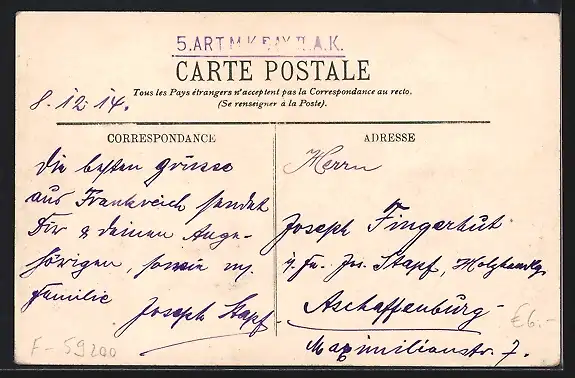 5. ART M.K. BAY. II. A.K.
CARTE POSTALE
Tous les Pays étrangers n'acceptent pas la Correspondance au recto.
(Se renseigner à la Poste).
8.12.14.
CORRESPONDANCE
die besten Grüsse
aus Frankreich sendet
Dir & deinen Ange-
hörigen, sowie
Familie
Joseph Stapf
F-59200
ADRESSE
Herrn
Joseph Fingerhut
Fa. Jos. Stapf, Holzhandlg.
Aschaffenburg
Maximilianstr. 7.
€6.-